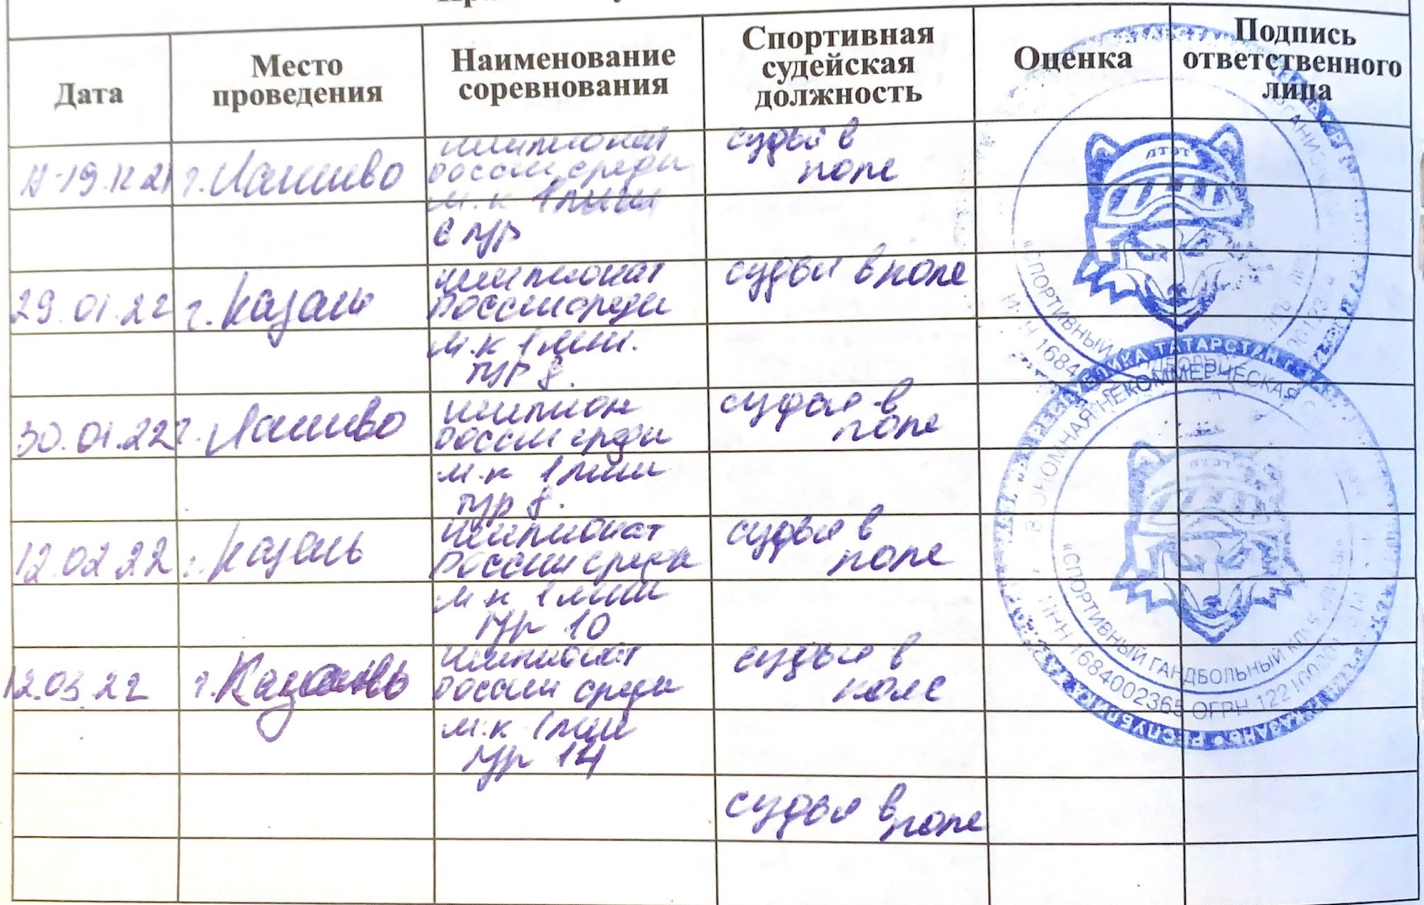 Дата
Место
проведения
Наименование
соревнования
Спортивная
судейская
должность
Оценка
Подпись
ответственного
лица
г. Лаишево
чемпионат
россии среди
м.к 1 лиги
6 тур
судья в
поле
29.01.22
г. Казань
чемпионат
россии среди
м.к 1 лиги.
тур 8.
судья в поле
30.01.22
г. Лаишево
чемпион
россии среди
м.к 1 лиги
тур 8.
судья в
поле
12.02.22
г. Казань
чемпионат
россии среди
м.к 1 лиги
тур 10
судья в
поле
12.03.22
г. Казань
чемпионат
россии среди
м.к 1 лиги
тур 14
судья в
поле
судья в поле
ЛТЭТ
«СПОРТИВНЫЙ
ИНН 1684
РЕСПУБЛИКА ТАТАРСТАН Г. КАЗАНЬ
АВТОНОМНАЯ НЕКОММЕРЧЕСКАЯ
ЛТЭТ
«СПОРТИВНЫЙ ГАНДБОЛЬНЫЙ КЛУБ
ИНН 1684002365 ОГРН